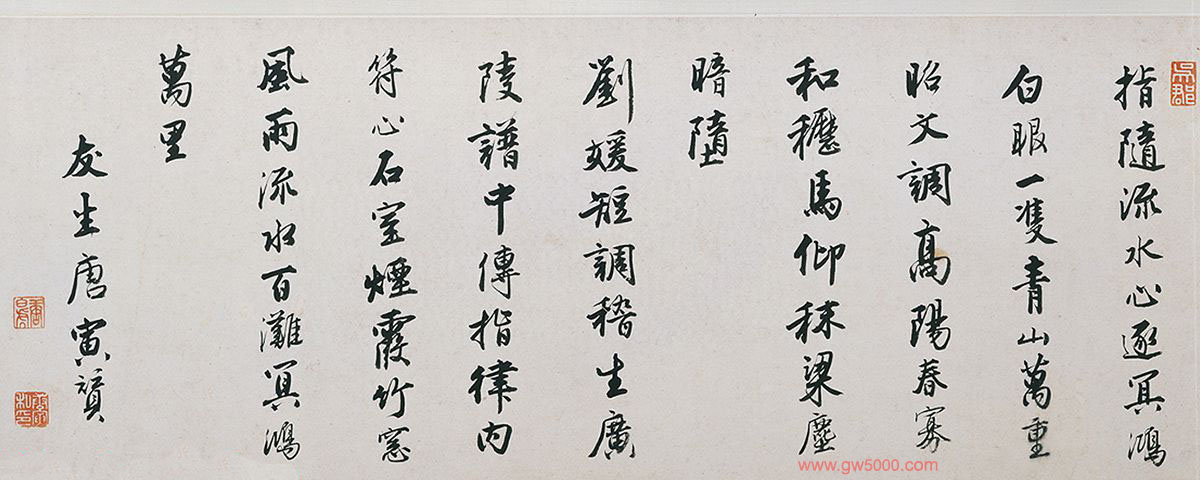 吳郡
指隨流水心逐冥鴻
白眼一雙青山萬重
昭文調高陽春寡
和櫪馬仰秣梁塵
暗墮
劉媛短調稽生廣
陵譜中傳指律内
符心石室煙霞竹窓
風雨流水百灘冥鴻
萬里
友生唐寅贊
www.gw5000.com